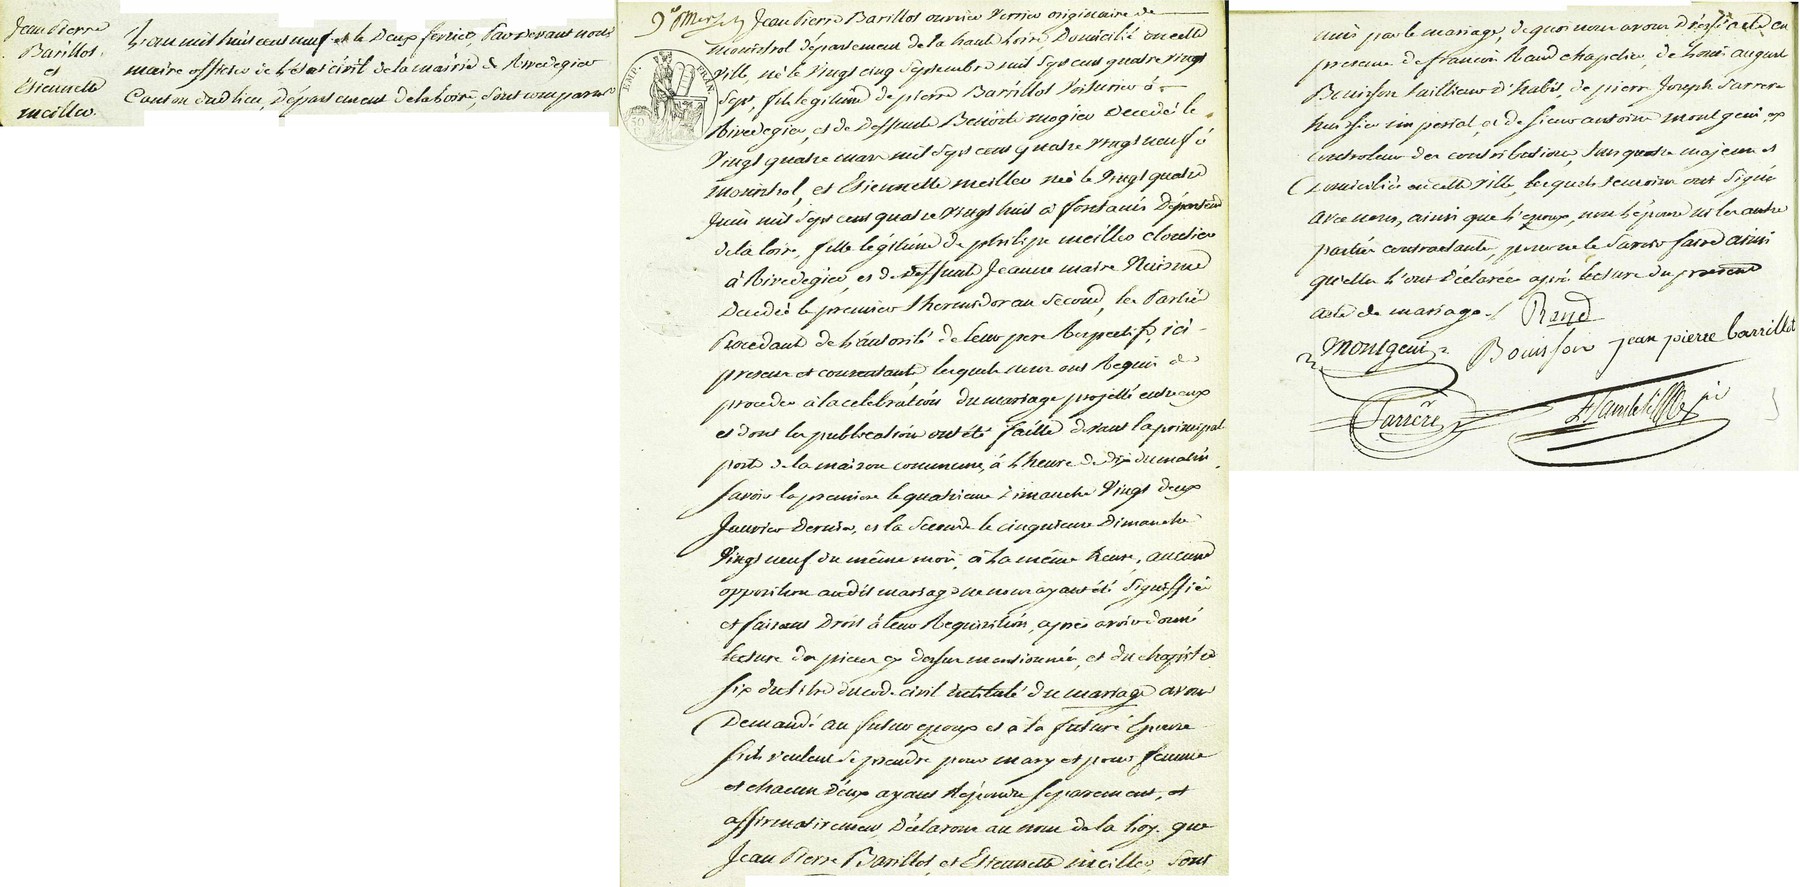 Jean Pierre
Barillot
et
Etiennette
meiller
L'an mil huit cent neuf et le Deux fevrier, Pardevant nous
maire officier de l'état civil de la mairie de Rivedegier
Canton dudlieu, Département de la loire, sont comparus
Jean Pierre Barillot ouvrier Verrier originaire de
monistrol département de la haute loire, Domicilié en cette
ville, né le vingt cinq Septembre mil sept cent quatre vingt
Sept, fils legitime de pierre Barillot Voiturier à
Rivedegier, et de Deffunte Benoite mogier Decedée le
Vingt quatre mars mil Sept cent quatre vingt neuf à
monistrol, et Etiennette meiller née le Vingt quatre
Juin mil Sept cent quatre vingt huit à fontanès Département
de la loire, fille légitime de philipe meiller cloutier
à Rivedegier, et de deffunte Jeanne marie
Decedée le premier thermidor an Second, les Parties
Procedant de l'autorité de leur pere Respectif, ici
present et consentant lesquels nous ont Requis de
proceder à la celebration du mariage projetté entre eux
et dont les publications ont été faittes devant la principale
porte de la maison commune, à l'heure de dix du matin,
savoir la premiere le quatrieme Dimanche Vingt deux
Janvier Dernier, et la Seconde le cinquieme Dimanche
Vingt neuf du même mois, à la même heure, aucune
opposition audit mariage ne nous ayant été Signiffiée
et faisant Droit à leur Requisition, après avoir donné
lecture des pieces cy dessus mentionnées, et du chapitre
six du titre du code civil intitulé du mariage avons
Demandé au futur epoux et à la future Epouse
s'ils veulent se prendre pour mary et pour femme
et chacun d'eux ayant Répondu separement, et
affirmativement, Déclarons au nom de la loy que
Jean Pierre Barillot, et Etiennette meiller, sont
unis par le mariage, de quoi nous avons Dressé acte en
presence de francois Rand chapelier, de Louis august
Bouisson tailleur d'habits, de pierre Joseph Sarrere
huissier imperial, et de sieur antoine montgeni, ex
controleur des contributions, tous quatre majeurs et
Domiciliés en cette Ville, lesquels temoins ont Signé
avec nous, ainsi que l'epoux, non l'épouse ni les autres
parties contractantes, pour ne le Savoir faire ainsi
qu'elles l'ont déclaré après lecture du present
acte de mariage. Rand
montgeni Bouisson jean pierre barrillot
Sarrère